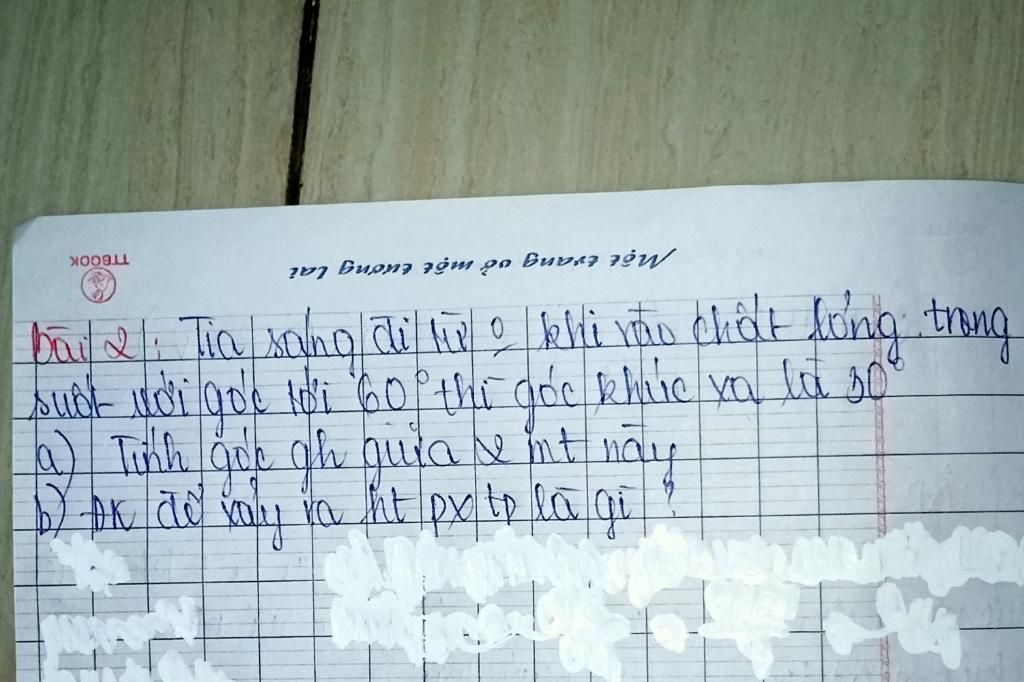 TTBOOK
Một trang vở một tương lai
Bài 2: Tia sáng đi từ o khi vào chất lỏng trong
suốt với góc tới 60° thì góc khúc xạ là 30°
a) Tính góc gh giữa 2 mt này
b) ĐK để xảy ra ht px tp là gì?